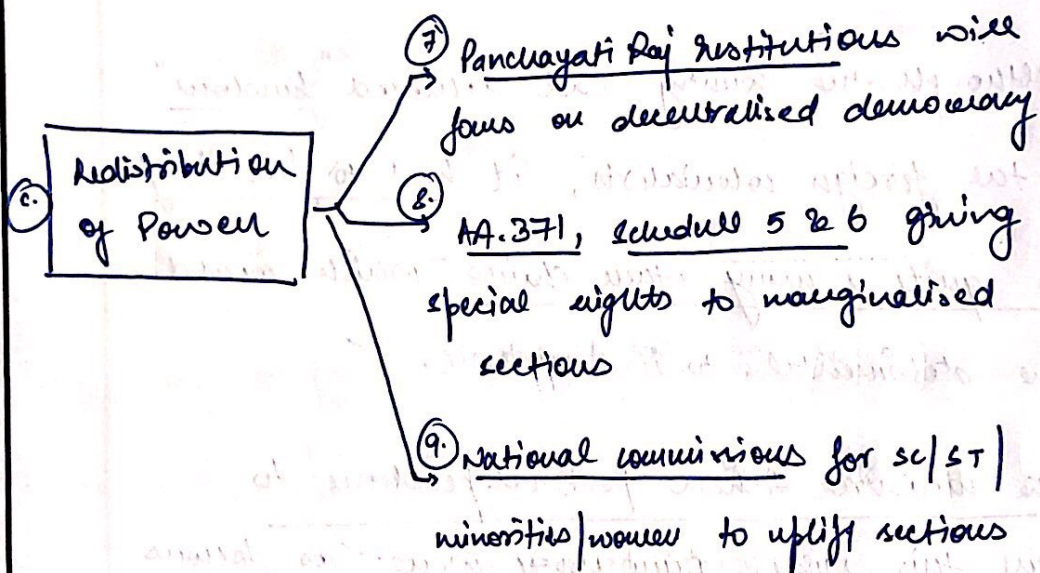 c. Redistribution
of Power
7 Panchayati Raj Institutions will
focus on decentralised democracy
8. AA.371, Schedule 5 & 6 giving
special rights to marginalised
sections
9. National commissions for SC/ST/
minorities/women to uplift sections